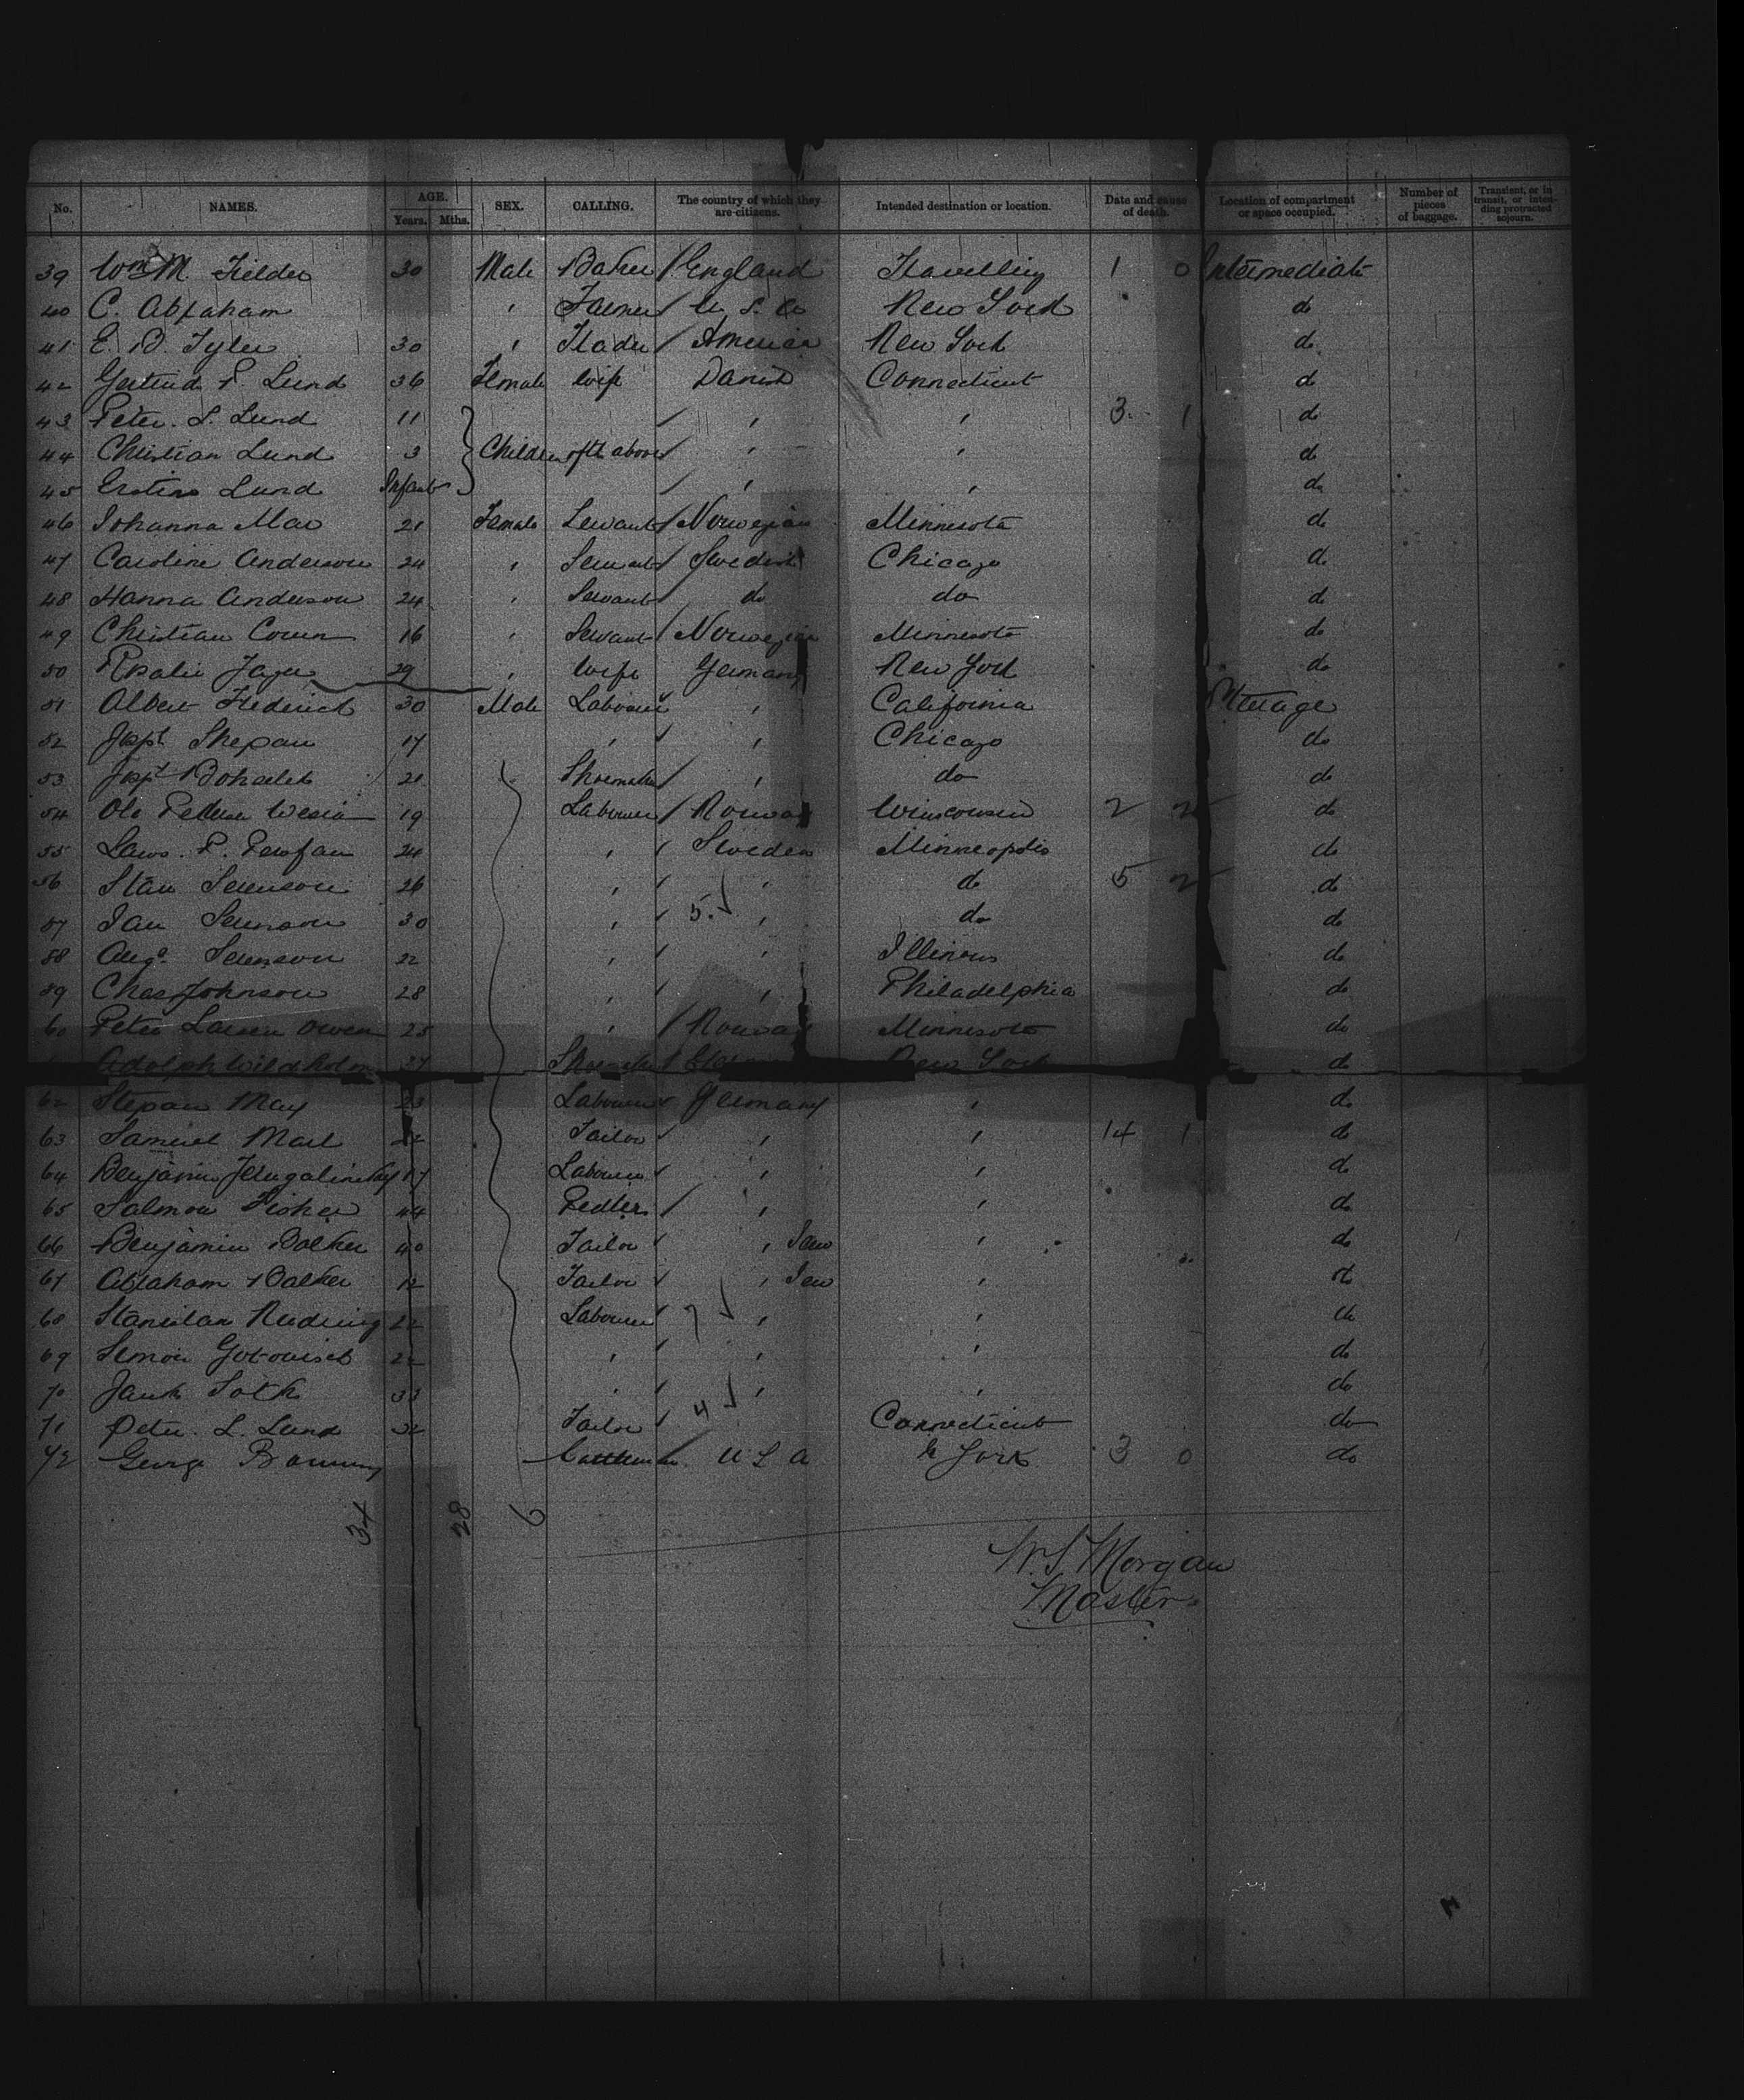 No. NAMES. AGE. Years. Mths. SEX. CALLING. The country of which they are citizens. Intended destination or location. Date and cause of death. Location of compartment or space occupied. Number of pieces of baggage. Transient, or in transit, or intending protracted sojourn.
39 Wm M Fielder 30 Male Baker / England Travelling 1 0 Intermediate
40 C. Abraham " Farmer / U. S. A New York do
41 E. B. Tyler 30 " Trader / America New York do
42 Gertrud P. Lund 36 Female Wife Danish Connecticut do
43 Peter. S. Lund 11 / " " 3 1 do
44 Christian Lund 3 Children of the above / " " do
45 Lund Infant / " " do
46 Johanna 21 Female Servant / Norwegian Minnesota do
47 Caroline Anderson 24 " Servant / Swedish Chicago do
48 Hanna Anderson 24 " Servant do do do
49 Christian 16 " Servant / Norwegian Minnesota do
50 29 " Wife Germany New York do
51 Albert Frederick 30 Male Labourer " California Steerage
52 Stepan 17 " / " Chicago do
53 21 Shoemaker / " do do
54 Ole 19 Labourer / Norway Winsconsin 2 2 do
55 P. 24 " / Sweden Minneapolis do
56 26 " / " do 5 2 do
57 30 " / 5. ✓ " do do
58 22 " / " Illinois do
59 Chas Johnson 28 " / " Philadelphia do
60 Peter Larsen 25 " / Norway Minnesota do
Adolph Wildholm 27 Shoemaker / New York do
62 Stepan May 23 Labourer Germany " do
63 Samuel 22 Tailor / " " 14 1 do
64 Benjamin 17 Labourer / " " do
65 Salmon Fisher 44 Pedler / " " do
66 Benjamin Balker 40 Tailor / " Jew " do
67 Abraham Balker 12 Tailor / " Jew " do
68 22 Labourer / 7 ✓ " " do
69 Simon 22 " / " " do
70 33 " / 4 ✓ " " do
71 Peter. L. Lund 32 Tailor / Connecticut do
72 George U S A N York 3 0 do
34 28 6
W. S. Morgan
Master